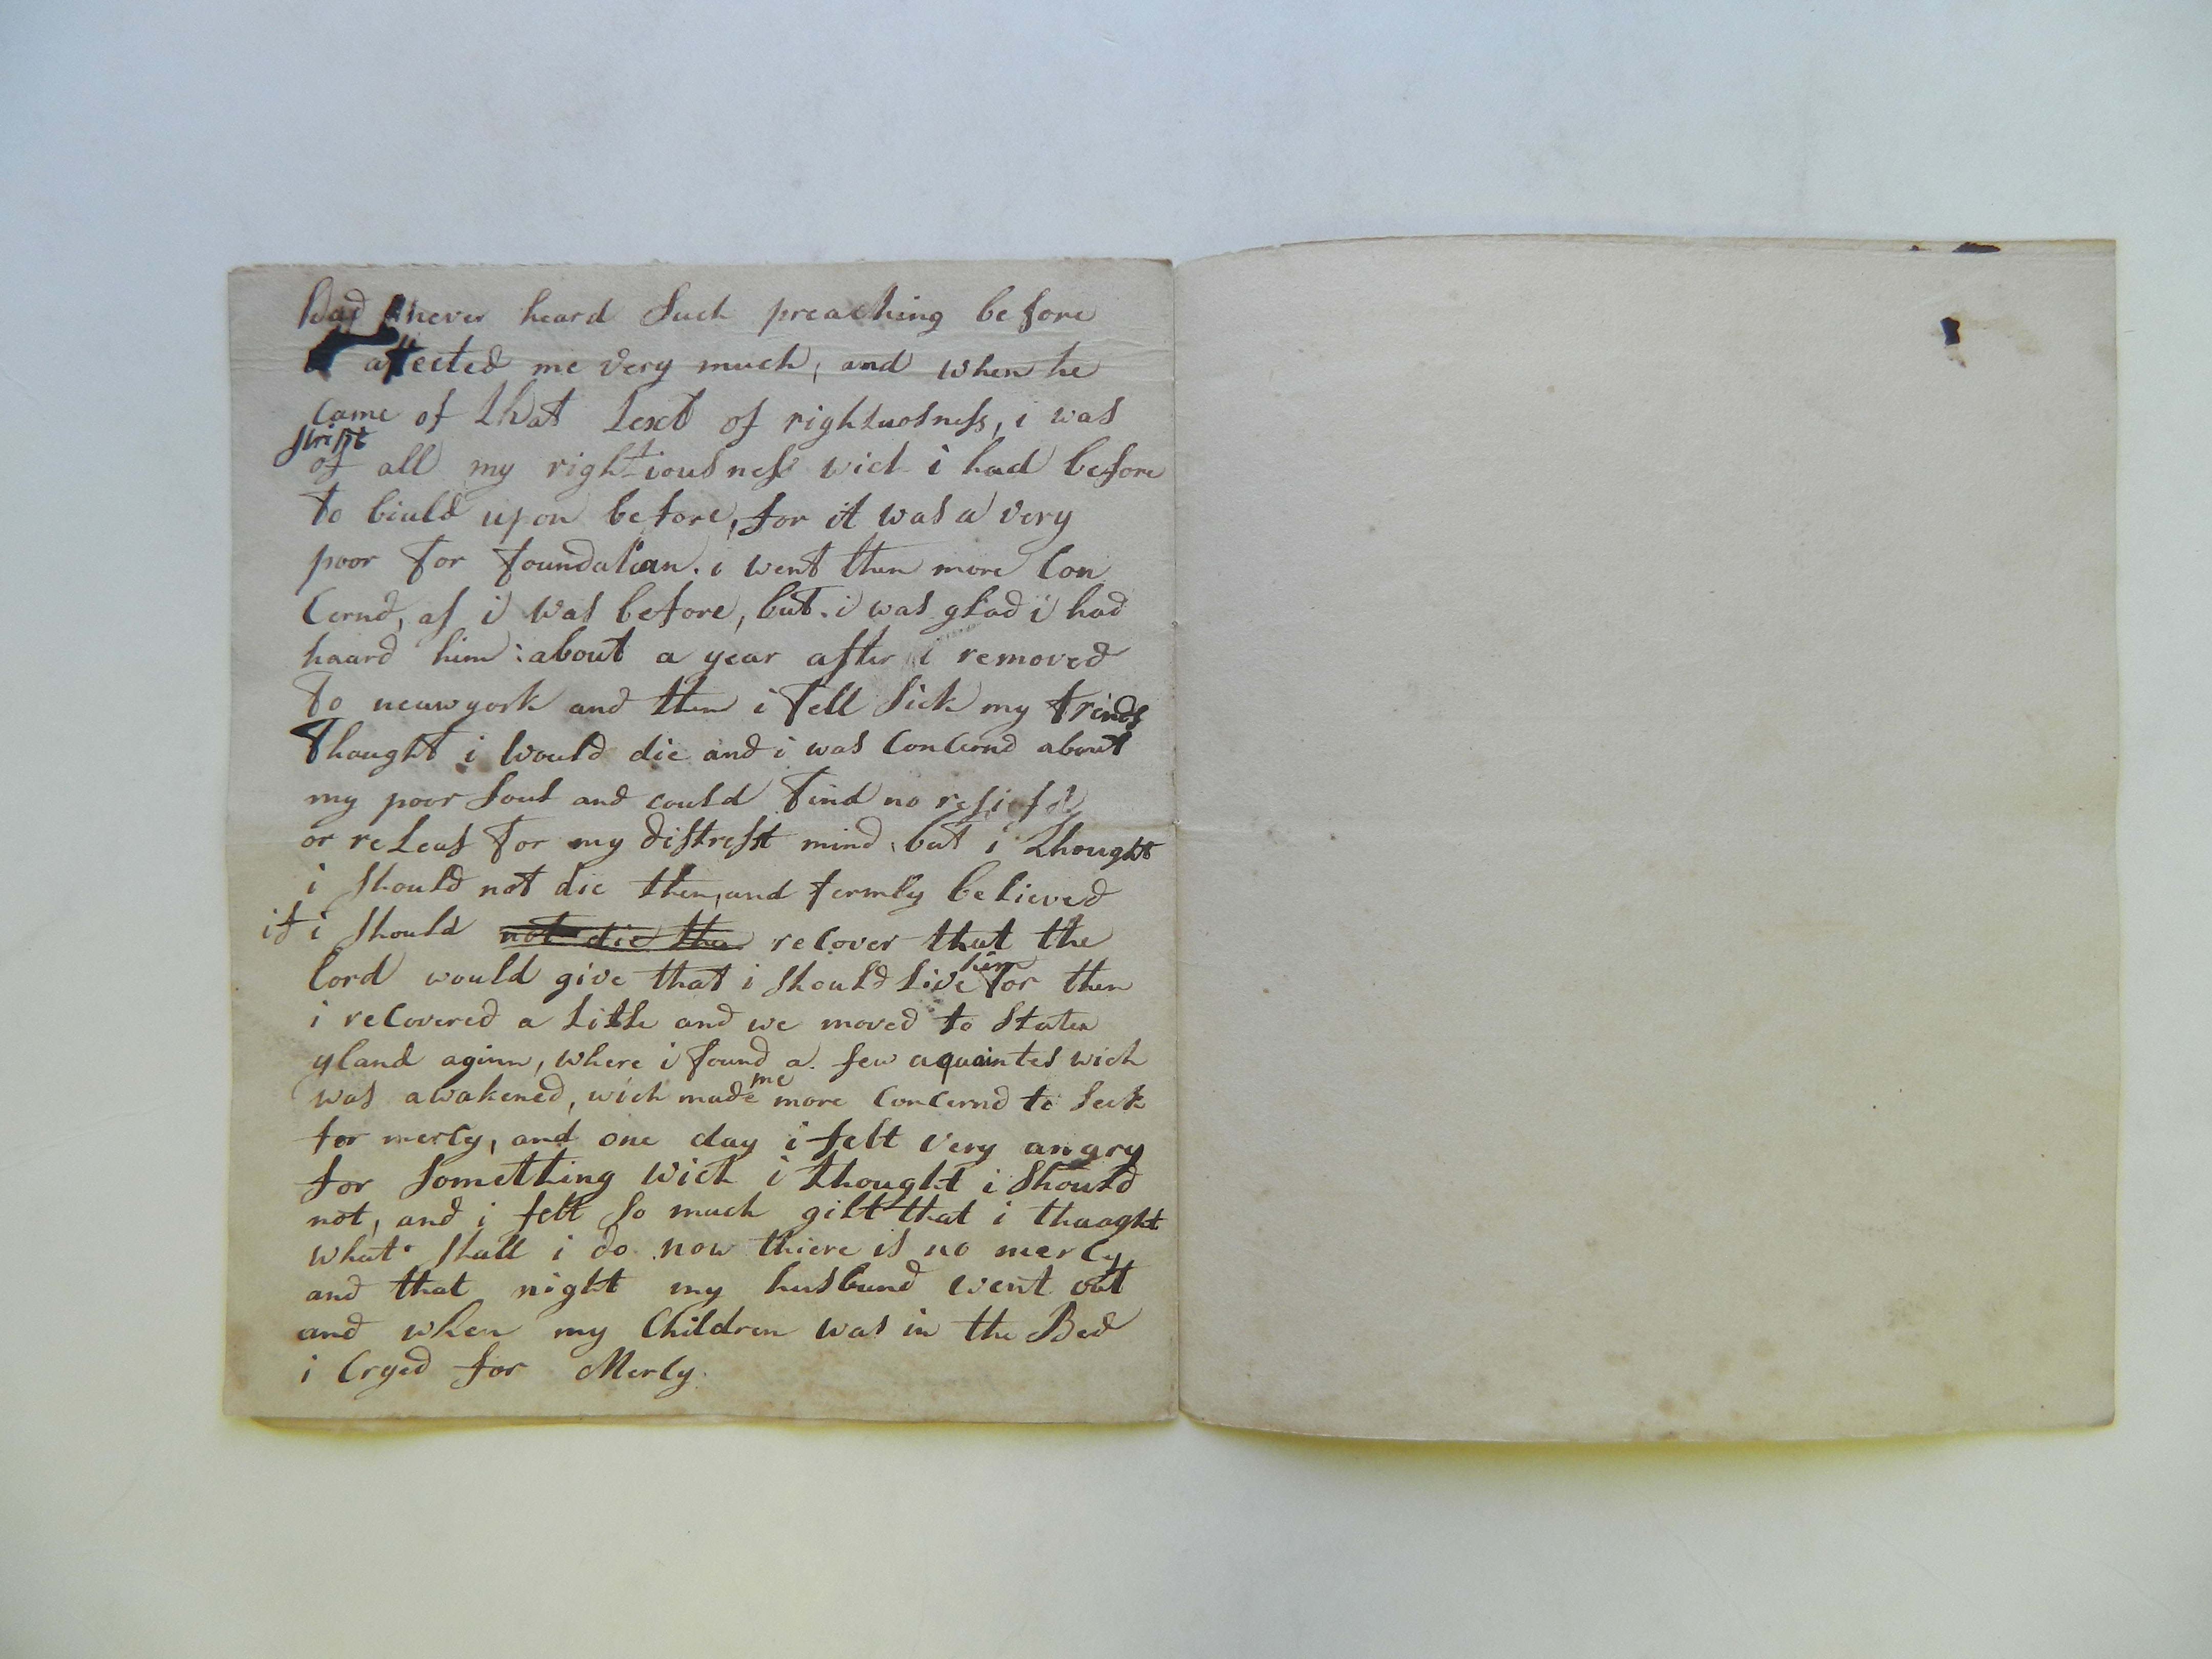 had never heard Such preaching before
affected me very much, and when he
Came of that text of rightuosness, i was
stript
of all my rightiousness wich i had before
to biuld upon before, for it was a very
poor for foundation. i went then more Con
Cernd, as i was before, but i was glad i had
haard him: about a year after i removed
to neuwyork and then i fell Sick my frinds
thought i would die and i was Concernd about
my poor Soul and could find no
or releas for my distresst mind, but i thought
i Should not die then, and fermly believed
if i Should not die then recover that the
lord would give that i should live for him then
i recovered a litle and we moved to Staten
yland aginn, where i found a few aquaintes wich
was awakened, wich made me more Concernd to Seek
for mercy, and one day i felt very angry
for Something wich i thought i Should
not, and i felt So much gilt that i thaaght
what Shall i do now thiere is no mercy
and that night my husbund went out
and when my Children was in the Bed
i Cryed for Mercy.